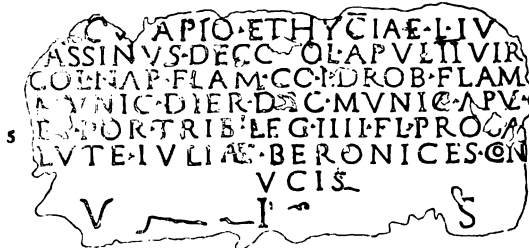 CV APIO·ETHYCIAE·L·IV
ASSINVS·DEC·C OL·APVL·IIVIR
COL·NAP·FLAM·CO·I·DROB·FLAM
MVNIC·DIER·DEC·MVNIC·APVL·
5 E POR·TRIB·LEG·IIII·FL·PRO
LVTE·IVLIAE·BERONICES·CON
VCIS
V I S